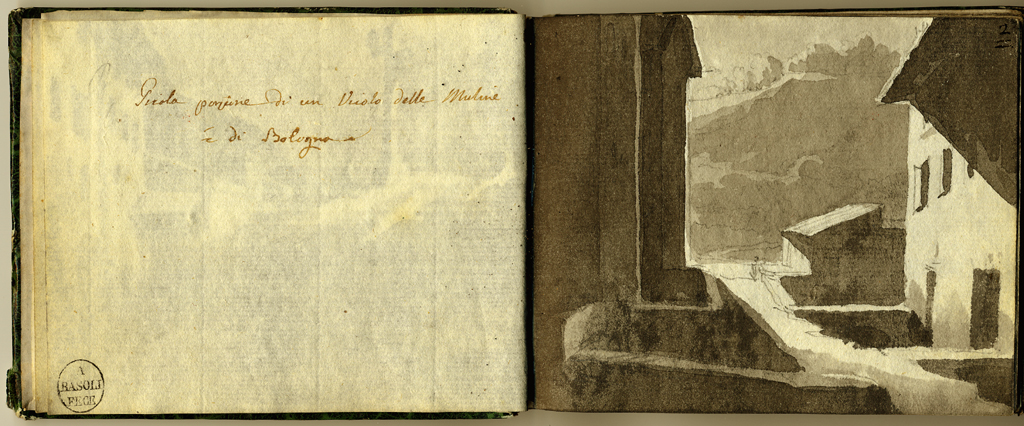 Picola porzione di un Vicolo delle Muline
di Bologna
A
BASOLI
FECE
2